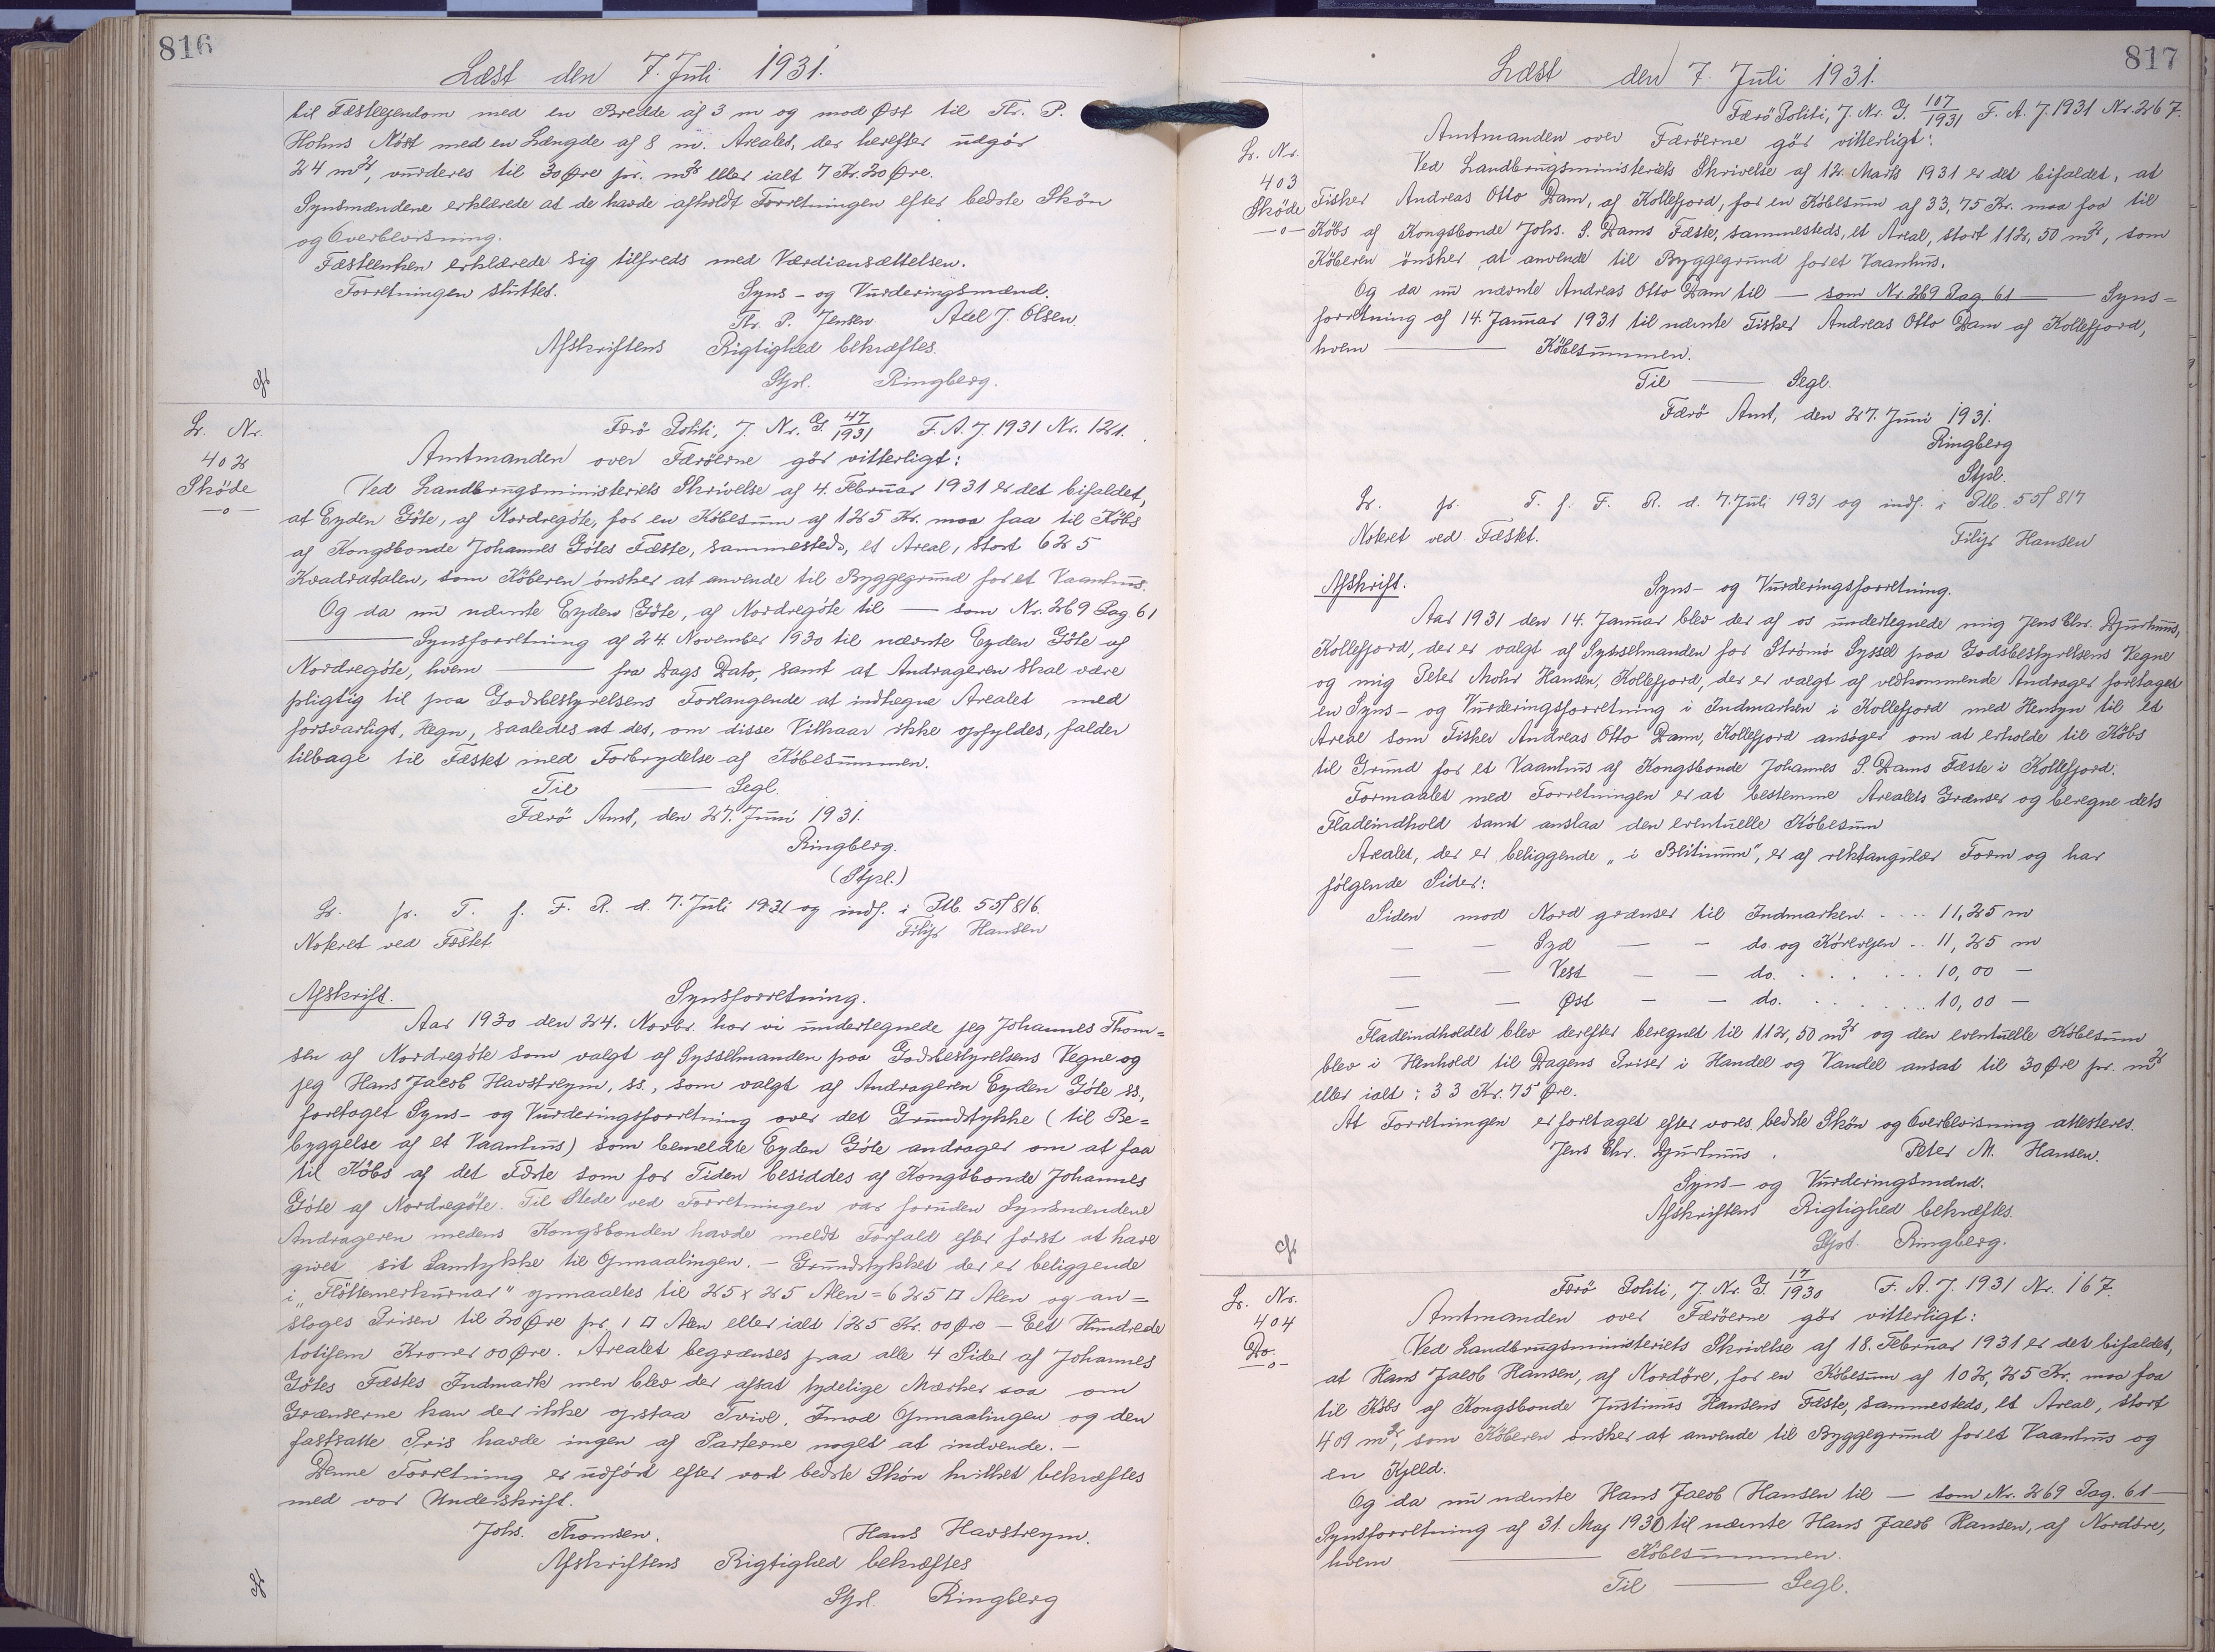 816
Læst den 7. Juli 1931.
til Fæsteejendom med en Bredde af 3 m og mod Øst til Thr. P.
Hohns Nöst med en Længde af 8 m. Arealet, der herefter udgör
24 m², vurderes til 30 Øre pr. m² eller ialt 7 Kr. 20 Øre.
Synsmændene erklærede at de havde afholdt Forretningen efter bedste Skön
og Overbevisning.
Fæsteenken erklærede sig tilfreds med Værdiansættelsen.
Forretningen sluttet. Syns- og Vurderingsmænd.
Thr. P. Jensen. Axel J. Olsen.
Afskriftens Rigtighed bekræftes.
Stpl. Ringberg.
L. Nr.
402
Sköde
—o—
Færö Politi, J. Nr. G. 47/1931 F. A. J. 1931 Nr. 121.
Amtmanden over Færöerne gör vitterligt:
Ved Landbrugsministeriets Skrivelse af 4. Februar 1931 er det bifaldet,
at Eyden Göte, af Nordregöte, for en Köbesum af 125 Kr. maa faa til Köbs
af Kongsbonde Johannes Götes Fæste, sammesteds, et Areal, stort 625
Kvadratalen, som Köberen önsker at anvende til Byggegrund for et Vaanhus.
Og da nu nævnte Eyden Göte, af Nordregöte til — som Nr. 269 Pag. 61
— Synsforretning af 24. November 1930 til nævnte Eyden Göte af
Nordregöte, hvem — fra Dags Dato, samt at Andrageren skal være
pligtig til paa Godsbestyrelsens Forlangende at indhegne Arealet med
forsvarligt, Hegn, saaledes at det, om disse Vilkaar ikke opfyldes, falder
tilbage til Fæstet med Forbrydelse af Köbesummen.
Til — Segl.
Færö Amt, den 27. Juni 1931.
Ringberg.
(Stpl.)
L. pr. T. f. F. R. d. 7. Juli 1931 og indf. i Ptb. 55f 816.
Noteret ved Fæstet. Filip Hansen
Afskrift. Synsforretning.
Aar 1930 den 24. Novbr. har vi undertegnede jeg Johannes Thom=
sen af Nordregöte som valgt af Sysselmanden paa Godsbestyrelsens Vegne og
jeg Hans Jacob Havstreym, ss., som valgt af Andrageren Eyden Göte ss.,
foretaget Syns- og Vurderingsforretning over det Grundstykke (til Be=
byggelse af et Vaanhus) som bemeldte Eyden Göte andrager om at faa
til Köbs af det Fæste som for Tiden besiddes af Kongsbonde Johannes
Göte af Nordregöte. Til Stede ved Forretningen var foruden Synsmændene
Andrageren medens Kongsbonden havde meldt Forfald efter först at have
givet sit Samtykke til Opmaalingen. — Grundstykket der er beliggende
i „Flöttemerkurnar" opmaaltes til 25 x 25 Alen = 625 □ Alen og an=
sloges Prisen til 20 Øre pr. 1 □ Alen eller ialt 125 Kr. 00 Øre — Eet Hundrede
totifem Kroner 00 Øre. Arealet begrænses paa alle 4 Sider af Johannes
Götes Fæstes Indmark men blev der afsat tydelige Mærker saa om
Grænserne kan der ikke opstaa Tvivl. Imod Opmaalingen og den
fastsatte Pris havde ingen af Parterne noget at indvende. —
Denne Forretning er udfört efter vort bedste Skön hvilket bekræftes
med vor Underskrift.
Johs. Thomsen. Hans Havstreym.
Afskriftens Rigtighed bekræftes
Stpl. Ringberg
817
Læst den 7. Juli 1931.
L. Nr.
403
Sköde
—o—
Færö Politi, J. Nr. G. 107/1931 F. A. J. 1931 Nr. 267.
Amtmanden over Færöerne gör vitterligt:
Ved Landbrugsministeriets Skrivelse af 12. Marts 1931 er det bifaldet, at
Fisker Andreas Otto Dam, af Kollefjord, for en Köbesum af 33,75 Kr. maa faa til
Köbs af Kongsbonde Johs. S. Dams Fæste, sammesteds, et Areal, stort 112,50 m², som
Köberen önsker at anvende til Byggegrund for et Vaanhus.
Og da nu nævnte Andreas Otto Dam til — som Nr. 269 Pag. 61 — Syns=
forretning af 14. Januar 1931 til nævnte Fisker Andreas Otto Dam af Kollefjord,
hvem — Köbesummen.
Til — Segl.
Færö Amt, den 27. Juni 1931.
Ringberg
Stpl.
L. pr. T. f. F. R. d. 7. Juli 1931 og indf. i Ptb. 55f 817
Noteret ved Fæstet. Filip Hansen
Afskrift. Syns- og Vurderingsforretning.
Aar 1931 den 14. Januar blev der af os undertegnede mig Jens Chr. Djurhuus,
Kollefjord, der er valgt af Sysselmanden for Strömö Syssel paa Godsbestyrelsens Vegne
og mig Peter Mohr Hansen, Kollefjord, der er valgt af vedkommende Andrager foretaget
en Syns- og Vurderingsforretning i Indmarken i Kollefjord med Hensyn til et
Areal som Fisker Andreas Otto Dam, Kollefjord ansöger om at erholde til Köbs
til Grund for et Vaanhus af Kongsbonde Johannes S. Dams Fæste i Kollefjord.
Formaalet med Forretningen er at bestemme Arealets Grænser og beregne dets
Fladeindhold samt anslaa den eventuelle Köbesum
Arealet, der er beliggende „i Blitinum", er af rektangulær Form og har
fölgende Sider:
Siden mod Nord grænser til Indmarken. . . . . 11,25 m
— — Syd — — do. og Körevejen . . 11,25 m
— — Vest — — do. . . . . . . 10,00 —
— — Øst — — do. . . . . . . 10,00 —
Fladeindholdet blev derefter beregnet til 112,50 m² og den eventuelle Köbesum
blev i Henhold til Dagens Priser i Handel og Vandel ansat til 30 Øre pr. m²
eller ialt: 33 Kr. 75 Øre.
At Forretningen er foretaget efter vores bedste Skön og Overbevisning attesteres.
Jens Chr. Djurhuus. Peter M. Hansen.
Syns- og Vurderingsmænd.
Afskriftens Rigtighed bekræftes.
Stpl. Ringberg.
L. Nr.
404
Do.
—o—
Færö Politi, J. Nr. G. 17/1930 F. A. J. 1931 Nr. 167.
Amtmanden over Færöerne gör vitterligt:
Ved Landbrugsministeriets Skrivelse af 18. Februar 1931 er det bifaldet,
at Hans Jacob Hansen, af Nordöre, for en Köbesum af 102,25 Kr. maa faa
til Köbs af Kongsbonde Justinus Hansens Fæste, sammesteds, et Areal, stort
409 m², som Köberen önsker at anvende til Byggegrund for et Vaanhus og
en Kjeld.
Og da nu nævnte Hans Jacob Hansen til — som Nr. 269 Pag. 61 —
Synsforretning af 31. Maj 1930 til nævnte Hans Jacob Hansen, af Nordöre,
hvem — Köbesummen.
Til — Segl.